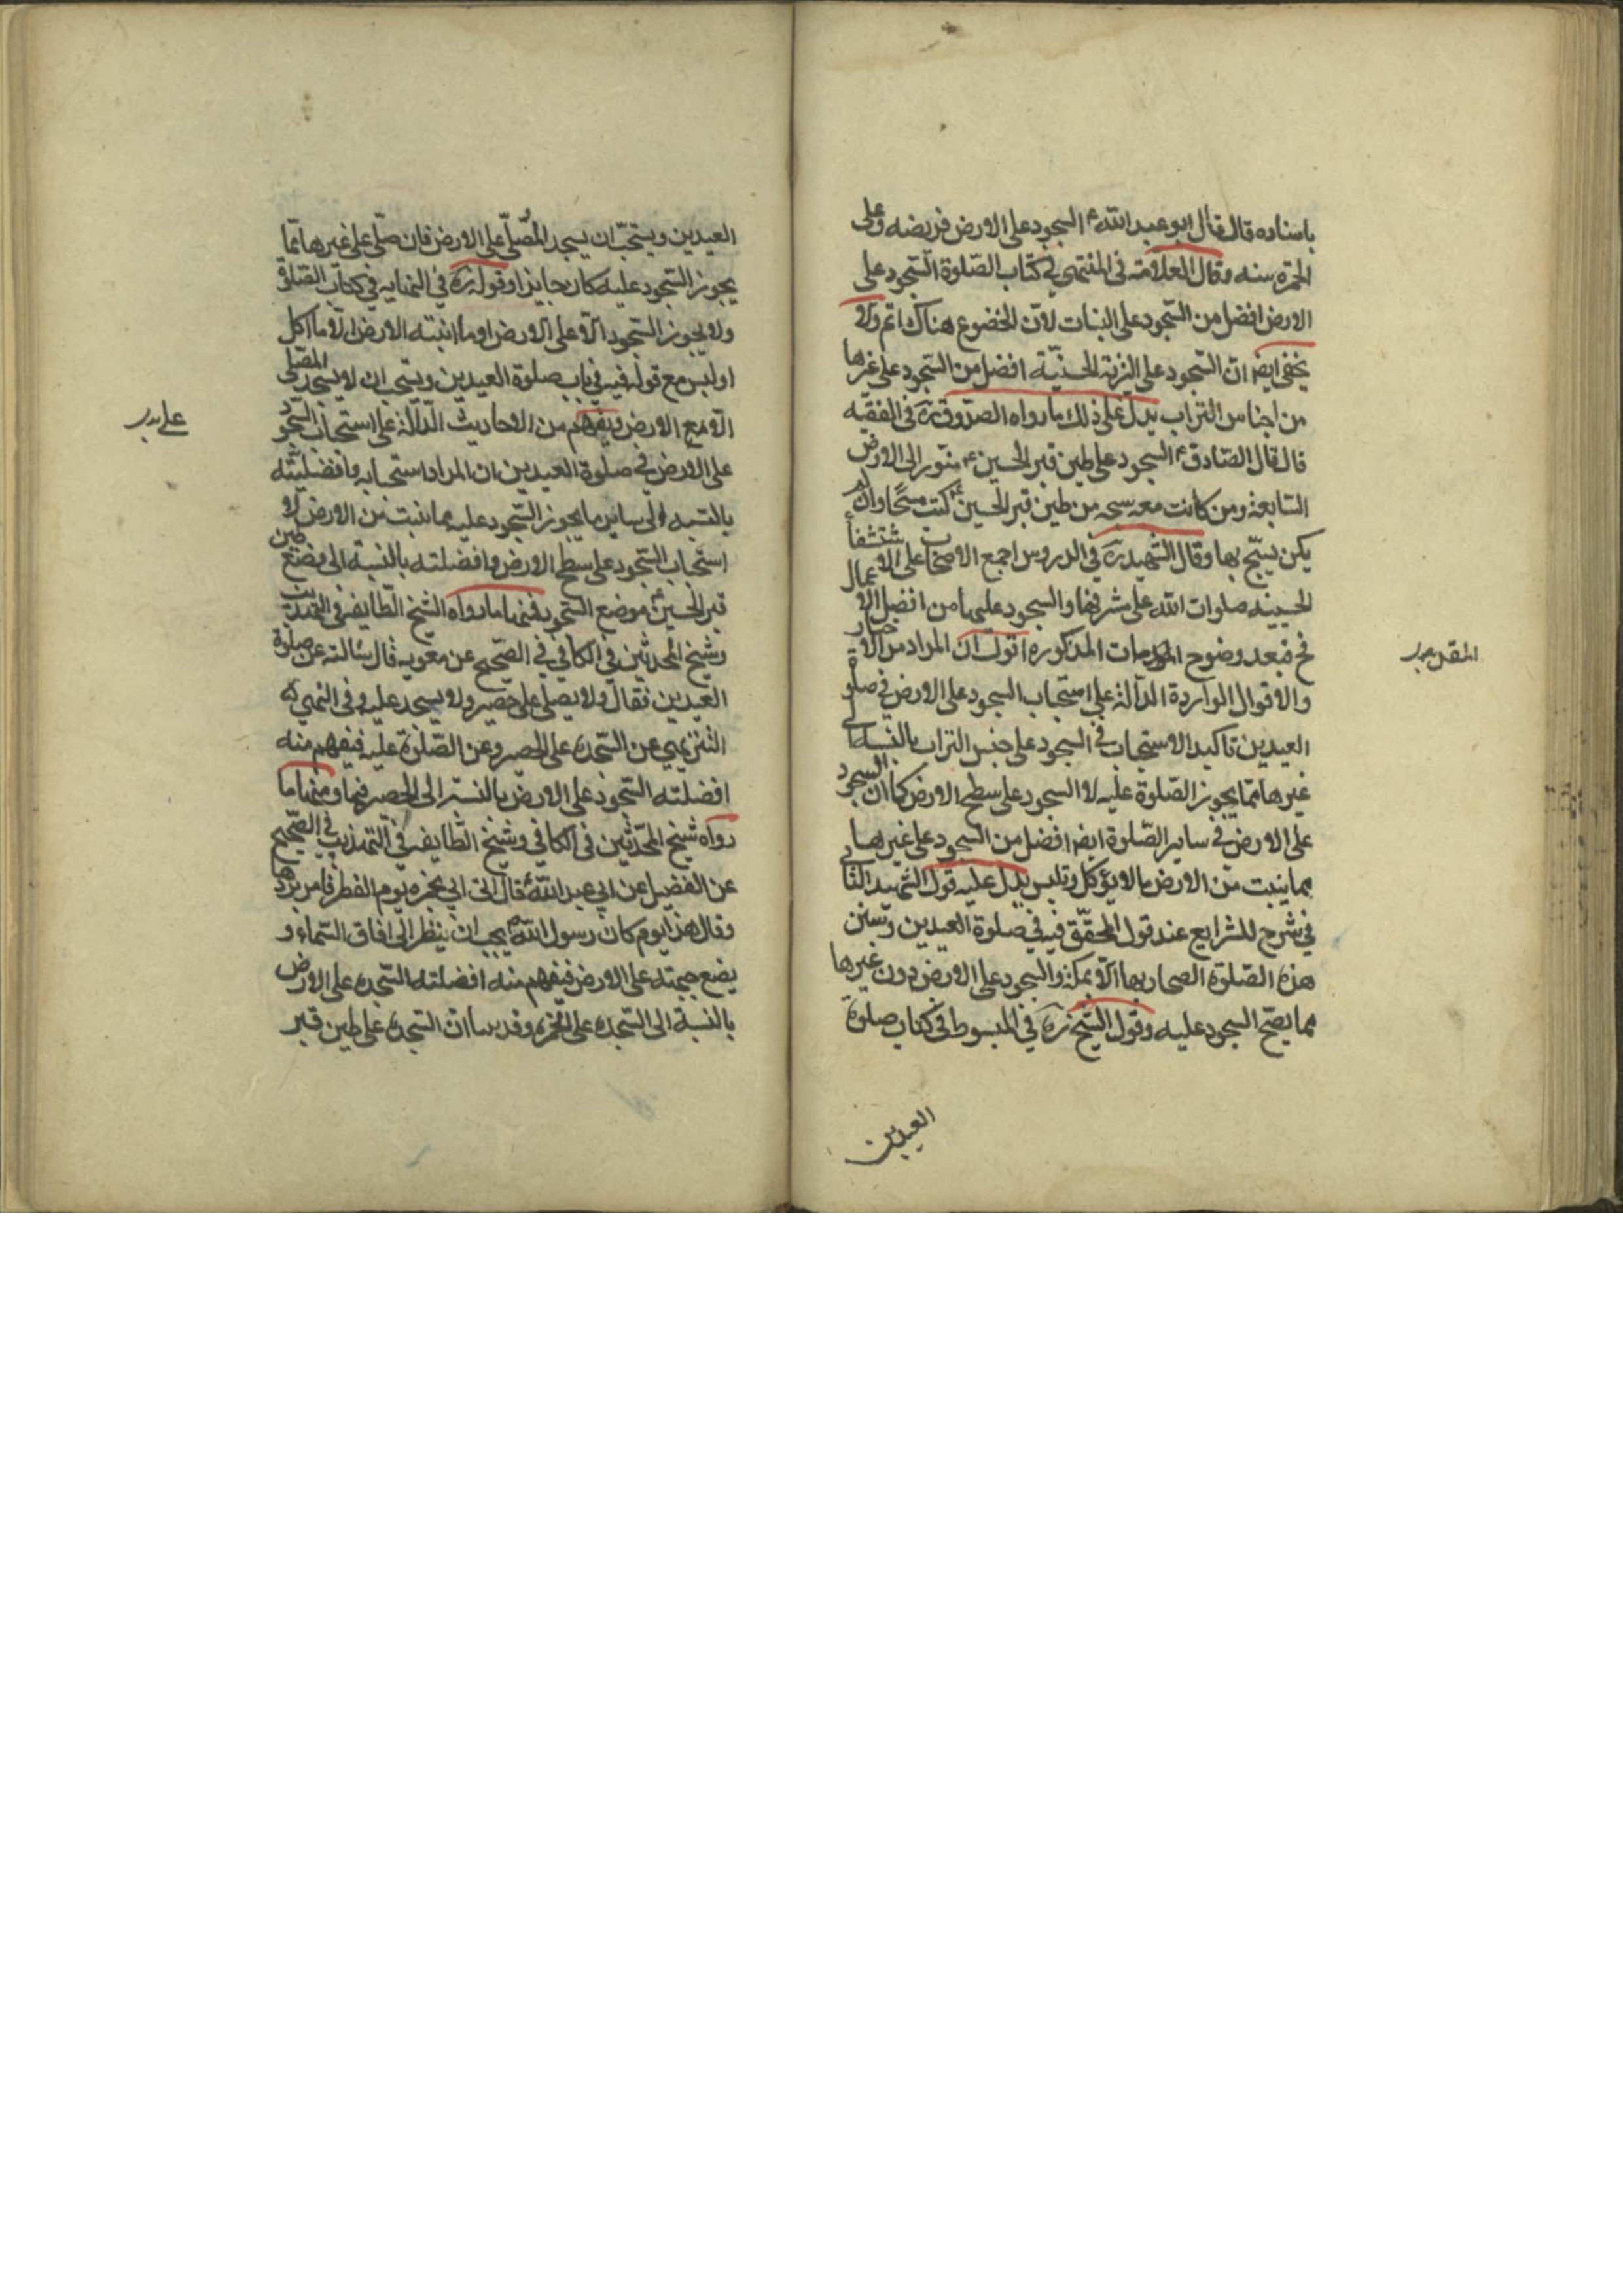 باسناده قال قال ابو عبد الله ع السجود على الارض فريضه وعلى
الخمرة سنه وقال العلامة فى المنتهى فى كتاب الصّلوة السّجود على
الارض افضل من السّجود على النبات لانّ الخضوع هناك اتم ولا
يخفى ايضا انّ السّجود على التربة الحسينيّة افضل من السّجود على غيرها
من اجناس التراب يدلّ على ذلك ما رواه الصدوق ره فى الفقيه
قال قال الصّادق ع السجود على طين قبر الحسين ع ينوّر الى الارض
السّابعة ومن كانت معه سبحه من طين قبر الحسين ع كتب مسبّحًا وان لم
يكن يسبّح بها وقال الشّهيد ره فى الدروس اجمع الاصحاب على الاستشفاء
الحسينيه صلوات الله على مشرفها والسجود عليها من افضل الاعمال
فح فبعد وضوح المقدمات المذكوره اقول انّ المراد من الاخبار
والاقوال الواردة الدالّة على استحباب السجود على الارض فى صلوة
العيدين تاكيد الاستحباب فى السجود على جنس التراب بالنسبة الى
غيرها ممّا يجوز الصّلوة عليه لا السجود على سطح الارض كما ان السجود
على الارض فى ساير الصّلوة ايضا افضل من السجود على غيرها
مما ينبت من الارض ما لا يؤكل وتلبس يدلّ عليه قول الشهيد الثانى
فى شرح للشرايع عند قول المحقّق فيه فى صلوة العيدين وسنن
هذه الصّلوة الاصحار بها الاّ بمكة والسجود على الارض دون غيرها
مما يصّح السجود عليه وقول الشّيخ ره فى المبسوط فى كتاب صلوة
العيدين
المقدمات
العيدين ويستحبّ ان يسجد المُصّلّى على الارض فان صلّى على غيرها ممّا
يجوز السّجود عليه كان جايزا وقوله ره فى النهايه فى كتاب الصّلوة
ولا يجوز السّجود الاّ على الارض او ما انبته الارض الاّ ما اكل
او لبس مع قوله فيه فى باب صلوة العيدين ويستحب ان لا يسجد المصّلى
الاّ مع الارض ويفهم من الاحاديث الدّالّة على استحباب السّجود
على الارض فى صلوة العيدين ان المراد استحبابه وافضليّته
بالنسبه الى ساير ما يجوز السّجود عليه مما ينبت من الارض لا
استحباب السّجود على سطح الارض وافضلته بالنسبة الى وضع طين
قبر الحسين ع موضع السّجود فمنها ما رواه الشيخ الطّايفه فى التهذيب
وشيخ المحدثين فى الكافى فى الصّحيح عن معويه قال سالته عن صلوة
العيدين فقال ولا يصلى على حصير ولا يسجد عليه وفى النهى
التنزيهى عن السّجده على الحصير وعن الصّلوة عليه فيفهم منه
افضلته السّجود على الارض بالنسبة الى الحصير فيها ومنها ما
رواه شيخ المحدّثين فى الكافى وشيخ الطّايفه فى التهذيب فى الصّحيح
عن الفضيل عن ابى عبد الله ع قال اتى ابى بخمره يوم الفطر فامر بردّها
وقال هذا يوم كان رسول الله ص يحب ان ينظر الى افاق السّماء و
يضع جبهته على الارض فيفهم منه افضلته السّجده على الارض
بالنسبة الى السّجده على الخمره وقد بينا انّ السّجده على طين قبر